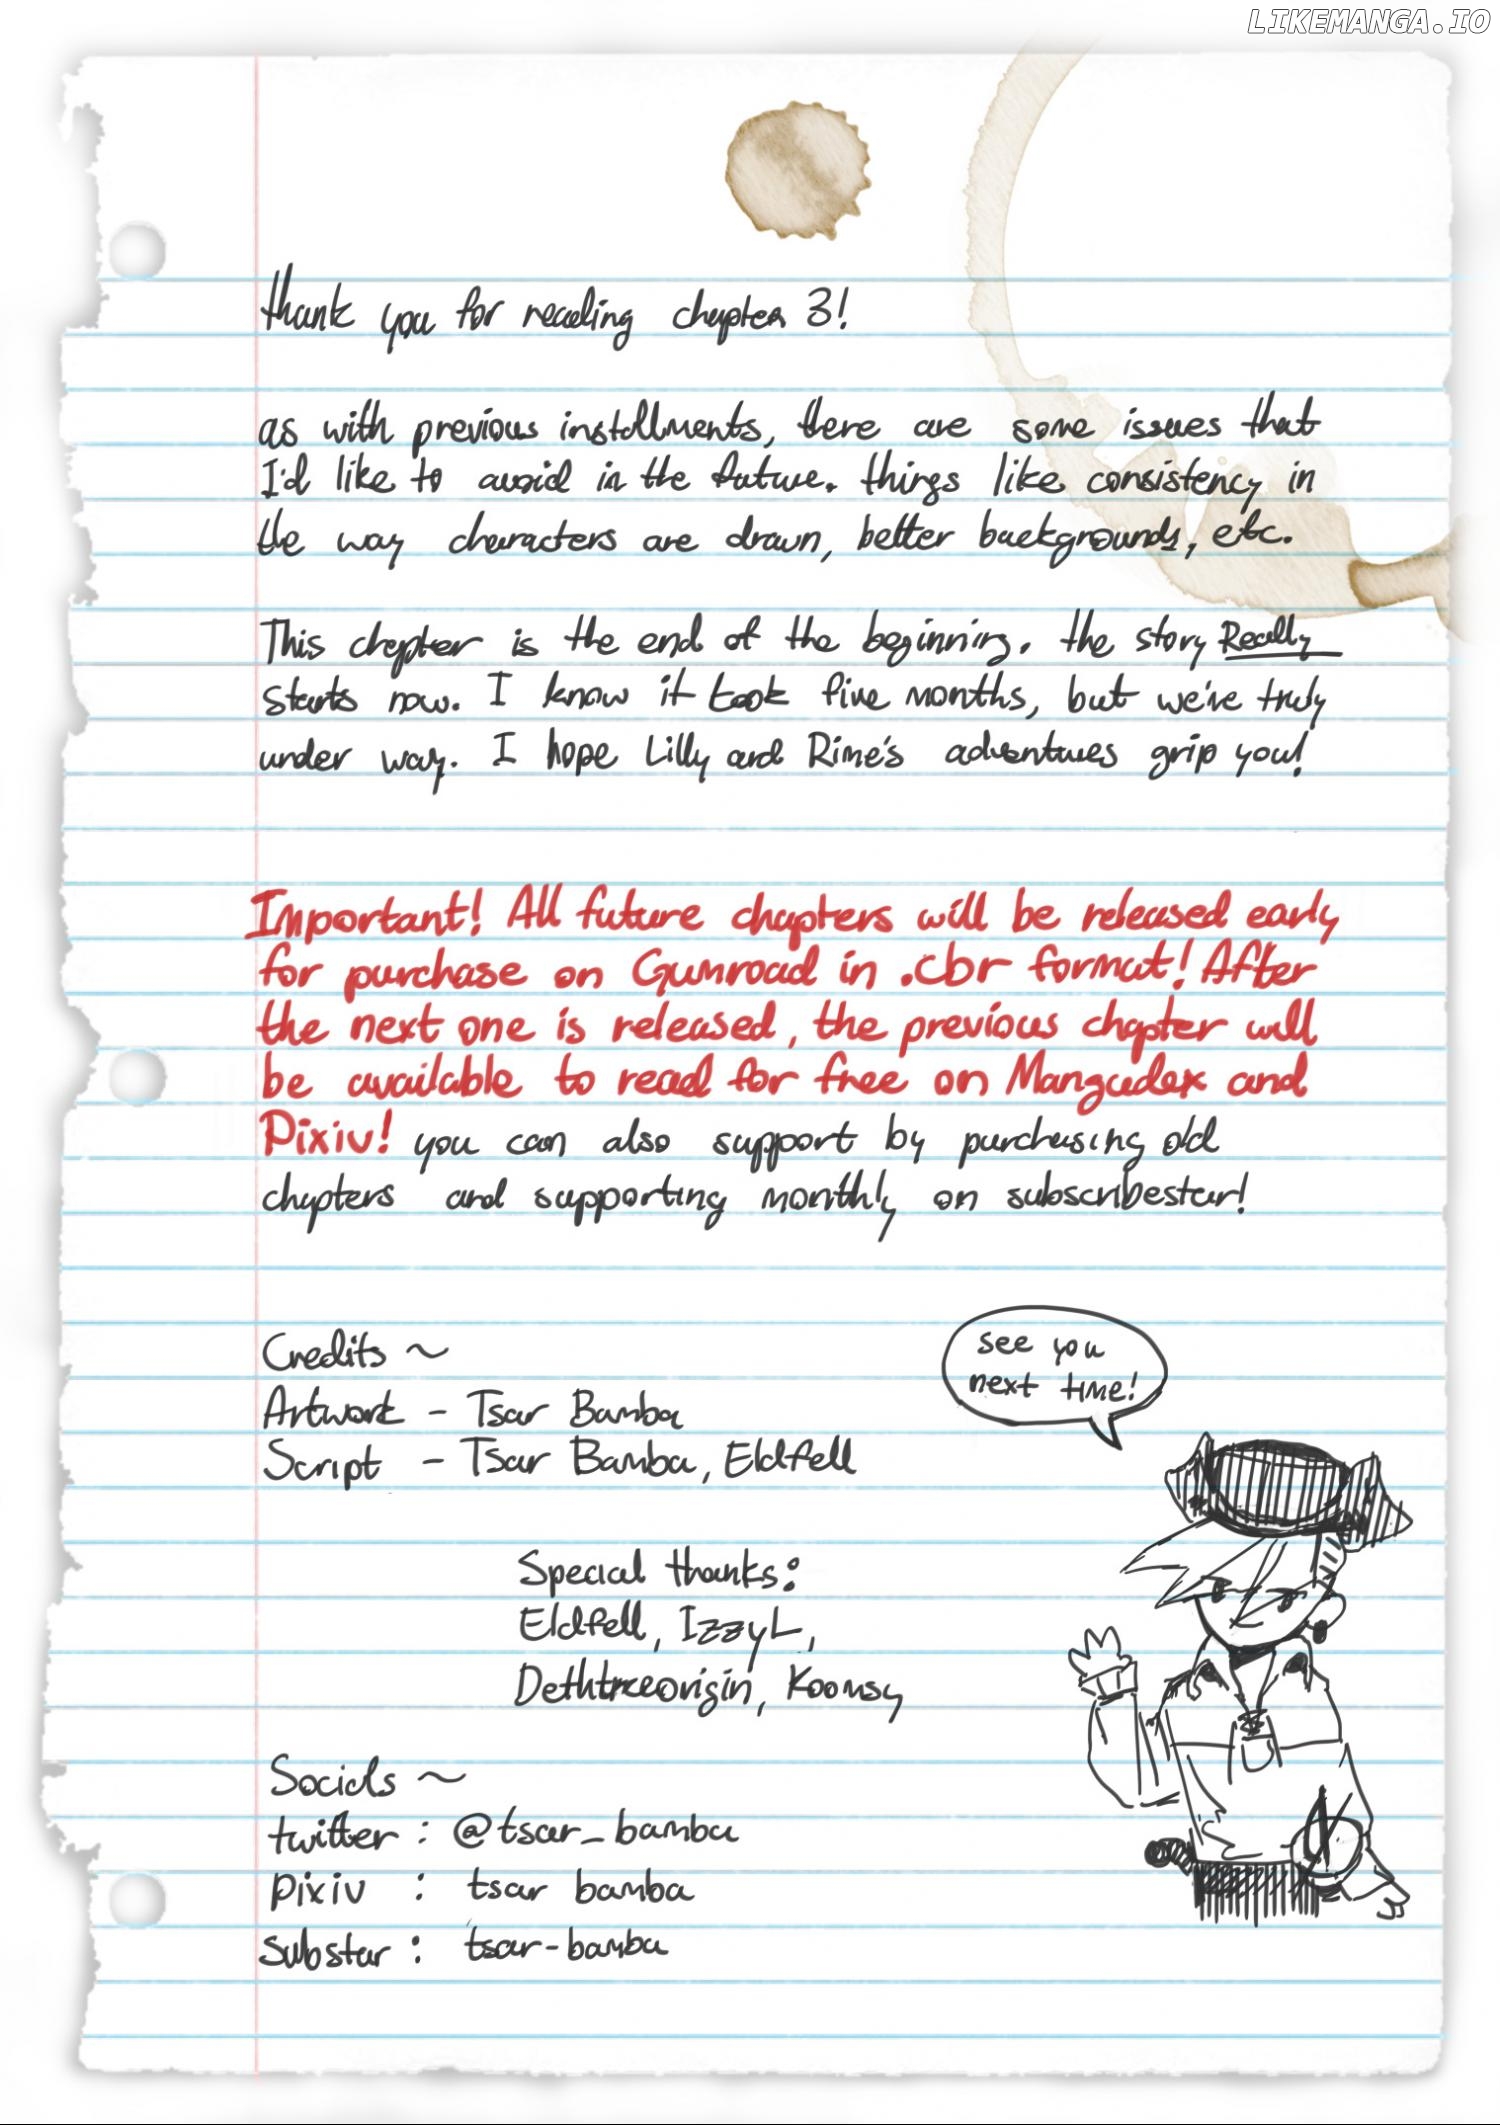 LIKEMANGA.IO
thank you for reading chapter 3!
as with previous installments, there are some issues that
I'd like to avoid in the future. things like consistency in
the way characters are drawn, better backgrounds, etc.
This chapter is the end of the beginning. the story Really
starts now. I know it took five months, but we're truly
under way. I hope Lilly and Rime's adventures grip you!
Important! All future chapters will be released early
for purchase on Gumroad in .cbr format! After
the next one is released, the previous chapter will
be available to read for free on Mangadex and
Pixiv! you can also support by purchasing old
chapters and supporting monthly on subscribestar!
Credits ~
Artwork - Tsar Bamba
Script - Tsar Bamba, Eldfell
see you
next time!
Special thanks:
Eldfell, IzzyL,
Dethtrceorigin, Koomsy
Socials ~
twitter : @tsar_bamba
pixiv : tsar bamba
substar : tsar-bamba